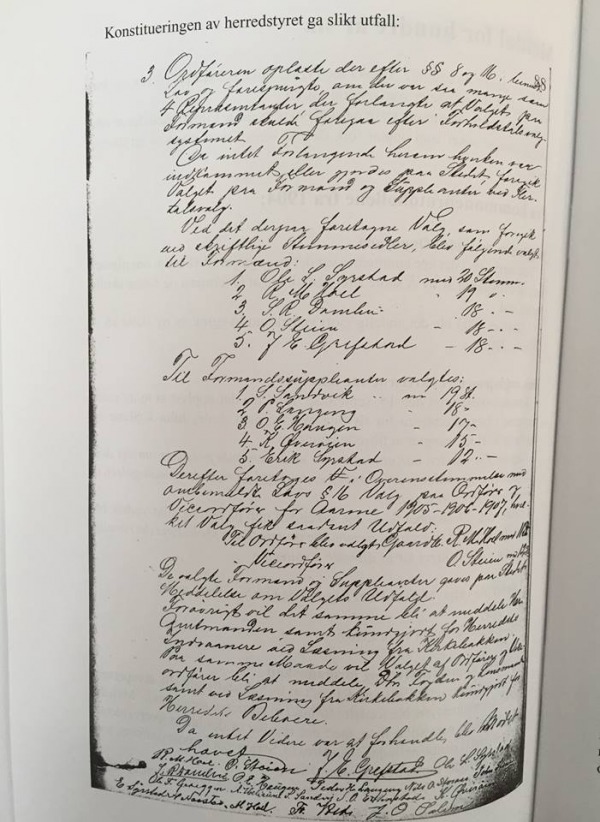 Konstitueringen av herredstyret ga slikt utfall:
3. Ordføreren oplæste der efter §§ 8 og
Lov og forespurgte, om der var saa mange som
4 Repræsentanter der forlangte at Valget paa
Formænd skulde foregaa efter Forholdstalsvalg-
systemet.
Da intet Forlangende herom hverken var
indkommet eller gjordes paa Stedet, foregik
Valget paa Formænd og Suppleanter ved Fler-
talsvalg.
Ved det derpaa foretagne Valg, som foregik
ved skriftlige Stemmesedler, blev følgende valgt
til Formænd:
1. Ole L. Syrstad med 20 Stemm.
2 R. M. Hoel " 19 "
3. S. R. Damlien 18 - -
4. O. Steien - 18 - -
5. J. E. Grefstad - 18 - -
Til Formandssuppleanter valgtes:
1. S. Sandvik 19 St.
2 P. Langeng - 18 -
3 O. E. Haugen - 17 -
4 K. Øveraien - 15 -
5. Erik Syrstad - 12 -
Derefter foretoges i Overensstemmelse med
ombemeldte Lovs § 16 Valg paa Ordfører og
Viceordfører for Aarene 1905-1906-1907, hvil-
ket Valg fik saadant Udfald:
Til Ordfører blev valgt Gaardb. R. M. Hoel med
Viceordfører O. Steien med
De valgte Formænd og Suppleanter gaves paa Stedet
Meddelelse om Valgets Udfald.
Forøvrigt vil det samme bli at meddele Hr.
Amtmanden samt kundgjort for Herredets
Indvaanere ved Læsning fra Kirkebakken.
Paa samme Maade vil Valget af Ordfører og Vice-
ordfører bli at meddele, Fogden og Lensmand
samt ved Læsning fra Kirkebakken kundgjort for
Herredets Beboere.
Da intet Videre var at forhandle blev Mødet
hævet
R. M. Hoel. O. Steien J. E. Grefstad Ole L. Syrstad
S. Sandvik O. E. Haugen Peder K. Langeng
E. Syrstad M. Hoel J. O.